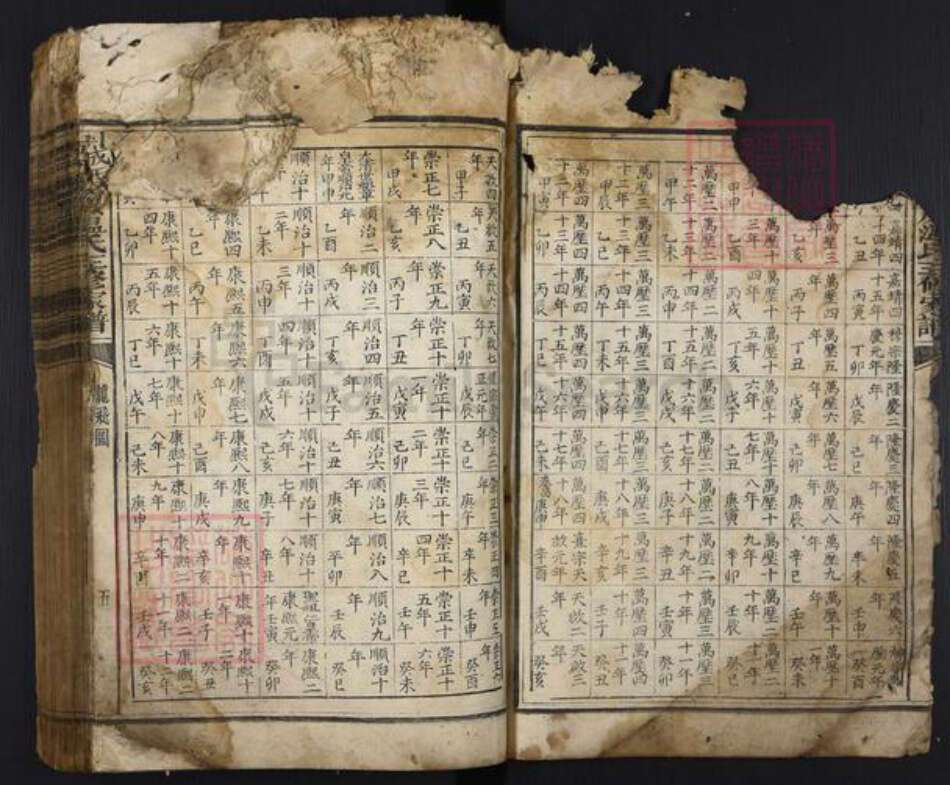 嘉靖四十四年 乙丑
嘉靖四十五年 丙寅
穆宗隆慶元年 丁卯
隆慶二年 戊辰
隆慶三年 己巳
隆慶四年 庚午
隆慶五年 辛未
隆慶六年 壬申
元年 癸酉
萬歷三年 乙亥
萬歷四年 丙子
萬歷五年 丁丑
萬歷六年 戊寅
萬歷七年 己卯
萬歷八年 庚辰
萬歷九年 辛巳
萬歷十年 壬午
萬歷十一年 癸未
年 甲申
萬歷十三年 乙酉
萬歷十四年 丙戌
萬歷十五年 丁亥
萬歷十六年 戊子
萬歷十七年 己丑
萬歷十八年 庚寅
萬歷十九年 辛卯
萬歷二十年 壬辰
萬歷二十一年 癸巳
萬歷二十二年 甲午
萬歷二十三年 乙未
萬歷二十四年 丙申
萬歷二十五年 丁酉
萬歷二十六年 戊戌
萬歷二十七年 己亥
萬歷二十八年 庚子
萬歷二十九年 辛丑
萬歷三十年 壬寅
萬歷三十一年 癸卯
萬歷三十二年 甲辰
萬歷三十三年 乙巳
萬歷三十四年 丙午
萬歷三十五年 丁未
萬歷三十六年 戊申
萬歷三十七年 己酉
萬歷三十八年 庚戌
萬歷三十九年 辛亥
萬歷四十年 壬子
萬歷四十一年 癸丑
萬歷四十二年 甲寅
萬歷四十三年 乙卯
萬歷四十四年 丙辰
萬歷四十五年 丁巳
萬歷四十六年 戊午
萬歷四十七年 己未
萬歷四十八年 庚申
熹宗天啟元年 辛酉
天啟二年 壬戌
天啟三年 癸亥
天啟四年 甲子
天啟五年 乙丑
天啟六年 丙寅
天啟七年 丁卯
崇正元年 戊辰
崇正二年 己巳
崇正三年 庚午
崇正四年 辛未
崇正五年 壬申
崇正六年 癸酉
崇正七年 甲戌
崇正八年 乙亥
崇正九年 丙子
崇正十年 丁丑
崇正十一年 戊寅
崇正十二年 己卯
崇正十三年 庚辰
崇正十四年 辛巳
崇正十五年 壬午
崇正十六年 癸未
大清世祖章皇帝順治元年 甲申
順治二年 乙酉
順治三年 丙戌
順治四年 丁亥
順治五年 戊子
順治六年 己丑
順治七年 庚寅
順治八年 辛卯
順治九年 壬辰
順治十年 癸巳
順治十 年 甲午
順治十二年 乙未
順治十三年 丙申
順治十四年 丁酉
順治十五年 戊戌
順治十六年 己亥
順治十七年 庚子
順治十八年 辛丑
康熙元年 壬寅
康熙二年 癸卯
康熙四年 乙巳
康熙五年 丙午
康熙六年 丁未
康熙七年 戊申
康熙八年 己酉
康熙九年 庚戌
康熙十年 辛亥
康熙十一年 壬子
康熙十二年 癸丑
康熙十四年 乙卯
康熙十五年 丙辰
康熙十六年 丁巳
康熙十七年 戊午
康熙十八年 己未
康熙十九年 庚申
康熙二十年 辛酉
康熙二十一年 壬戌
康熙二十二年 癸亥
氏三修家譜
龍飛圖
五